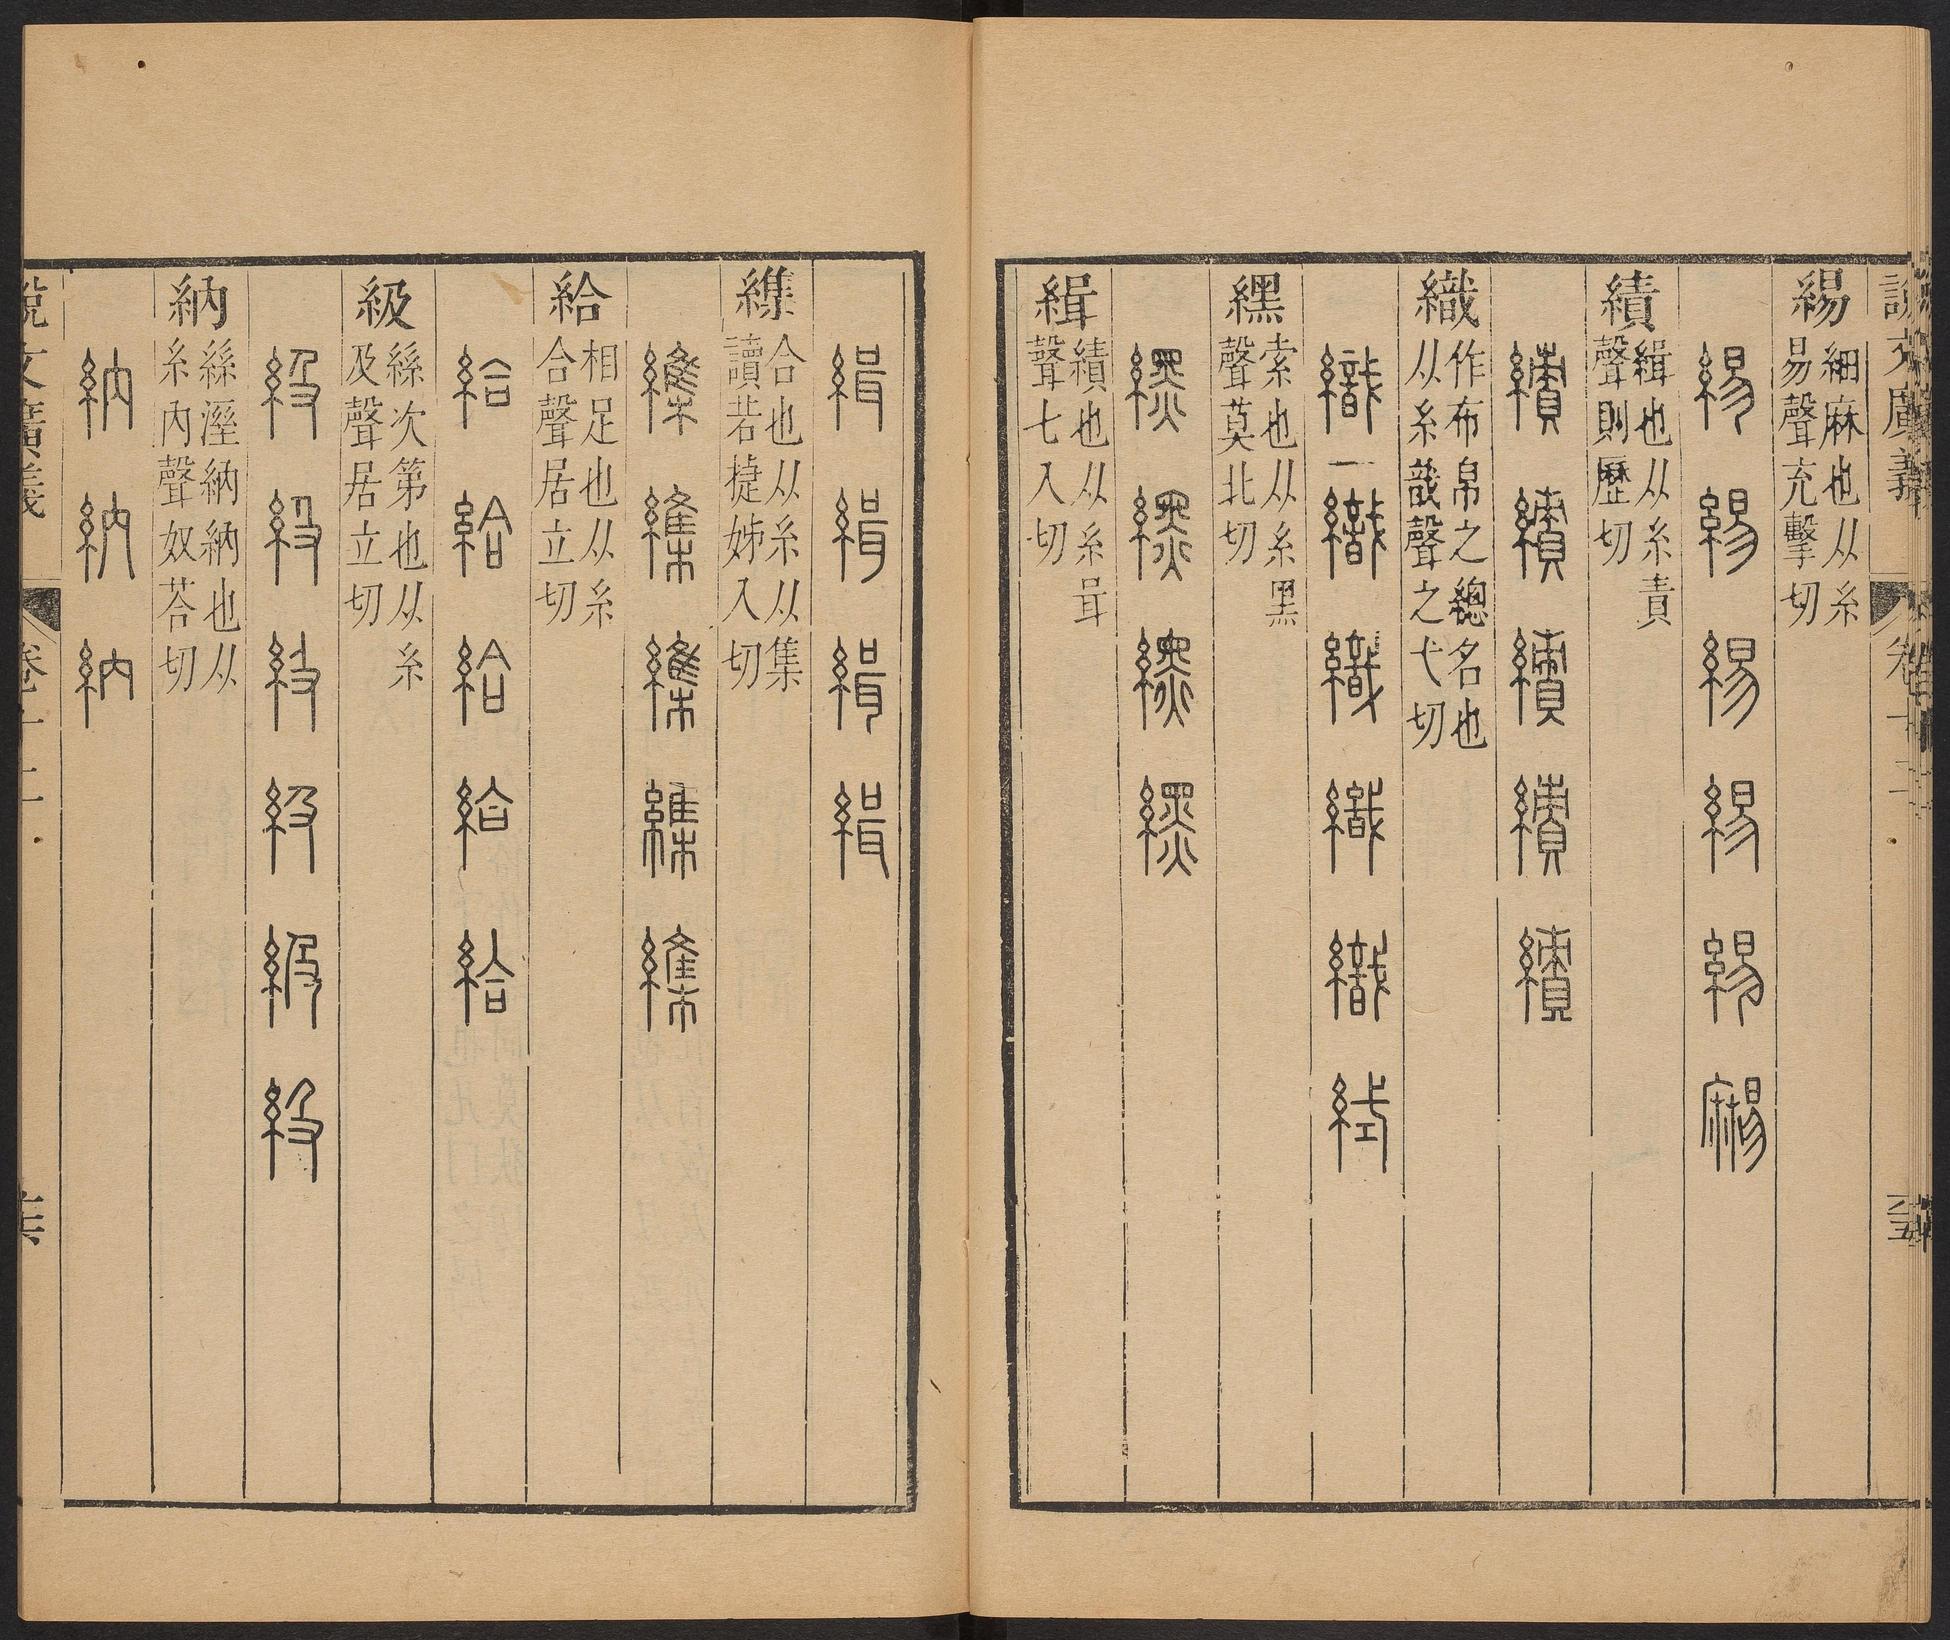 說文廣義
卷十二
緆
細麻也从糸
易聲充擊切
緆緆緆緆緆
績
緝也从糸責
聲則歷切
績績績績績
織
作布帛之總名也
从糸戠聲之弋切
織織織織織
纆
索也从糸黑
聲莫北切
纆纆纆纆
緝
績也从糸咠
聲七入切
緝緝緝緝
䌖
合也从糸从集
讀若㨗姊入切
䌖䌖䌖䌖䌖
給
相足也从糸
合聲居立切
給給給給給
級
絲次第也从糸
及聲居立切
級級級級級級
納
絲溼納納也从
糸內聲奴荅切
納納納
說文廣義
卷十二